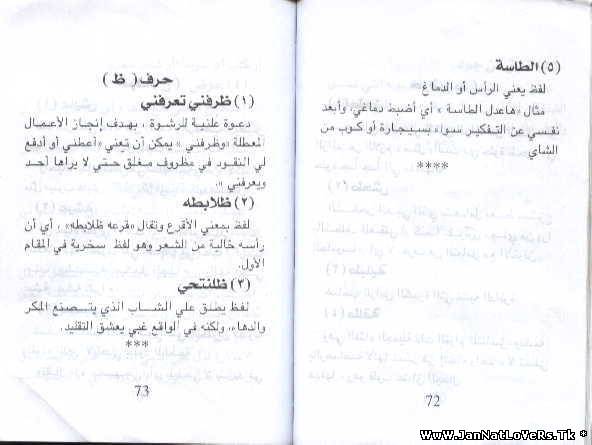 (٥) الطاسة
لفظ يعني الرأس أو الدماغ
مثال «هاعدل الطاسة » أي أضبط دماغي، وأبعد
نفسي عن التفكير سواء بسيجارة أو كوب من
الشاي
****
72
حرف ( ظ )
(١) ظرفني تعرفني
دعوة علنية للرشوة ، بهدف إنجاز الأعمال
المعطلة «وظرفني » يمكن أن تعني «أعطني أو أدفع
لي النقود في مظروف مغلق حتي لا يراها أحد
ويعرفني ».
(٢) ظلابطه
لفظ بمعني الأقرع وتقال «قرعه ظلابطه» ، أي أن
رأسه خالية من الشعر وهو لفظ سخرية في المقام
الأول.
(٣) ظلنتحي
لفظ يطلق علي الشاب الذي يتصنع المكر
والدهاء، ولكنه في الواقع غبي يعشق التقليد.
***
73
WwW.JanNatLoVeRs.Tk *